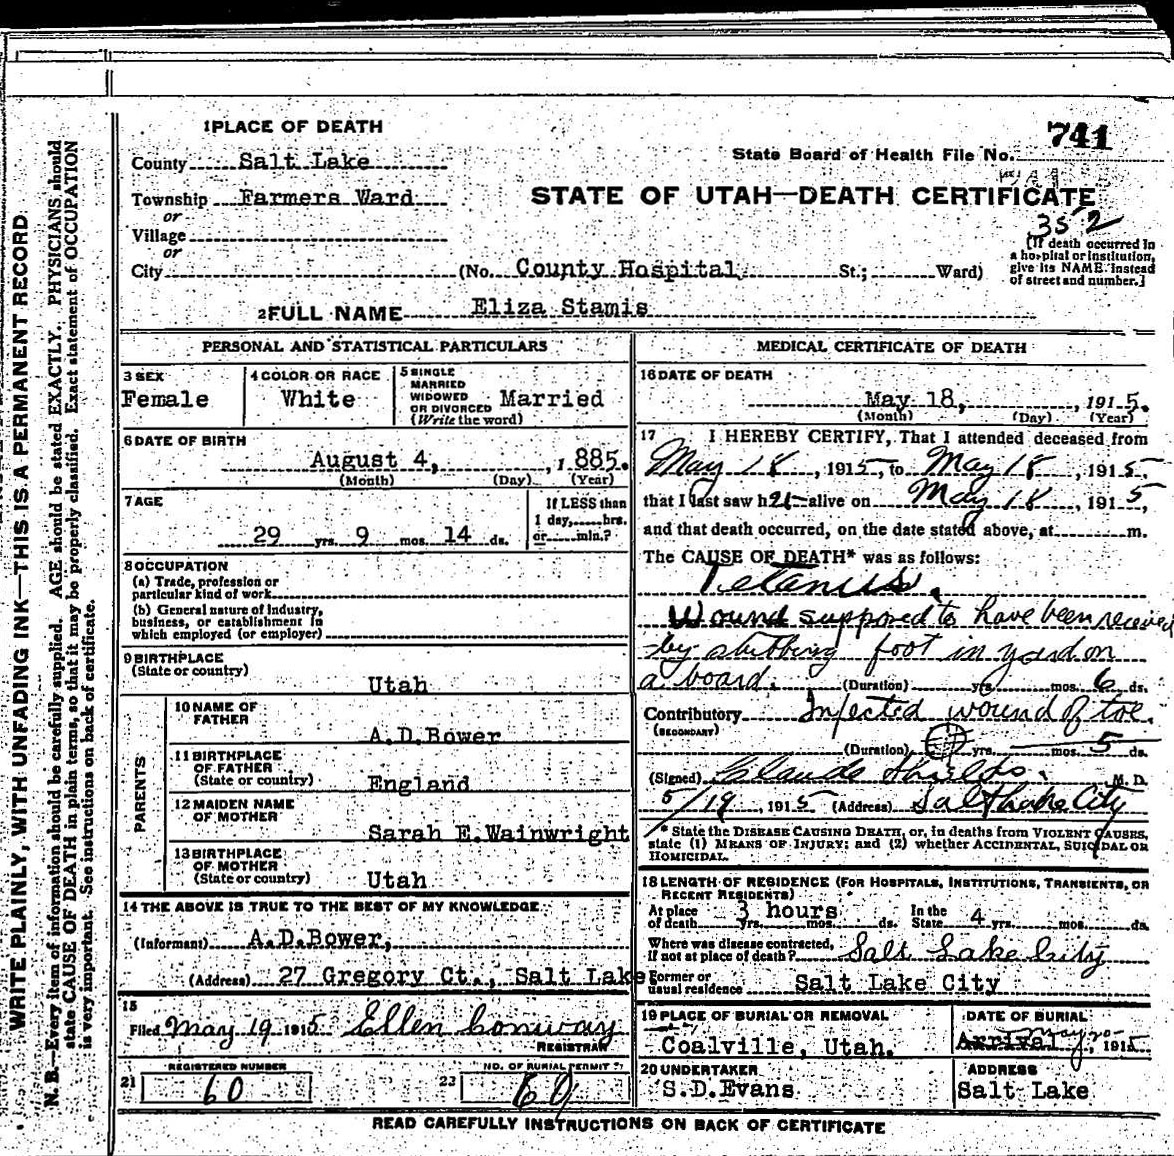 WRITE PLAINLY, WITH UNFADING INK—THIS IS A PERMANENT RECORD
N. B.—Every item of information should be carefully supplied. AGE should be stated EXACTLY. PHYSICIANS should
state CAUSE OF DEATH in plain terms, so that it may be properly classified. Exact statement of OCCUPATION
is very important. See instructions on back of certificate.
1 PLACE OF DEATH
741
County Salt Lake
State Board of Health File No.
Township Farmers Ward
STATE OF UTAH—DEATH CERTIFICATE
or
352
Village
or
City (No. County Hospital St.; Ward)
(If death occurred in
a hospital or institution,
give its NAME instead
of street and number.]
2 FULL NAME Eliza Stamis
PERSONAL AND STATISTICAL PARTICULARS
3 SEX
Female
4 COLOR OR RACE
White
5 SINGLE
MARRIED
WIDOWED
OR DIVORCED
(Write the word)
Married
6 DATE OF BIRTH
August 4, , 1 885.
(Month) (Day) (Year)
7 AGE
29 yrs. 9 mos. 14 ds.
If LESS than
1 day, hrs.
or min.?
8 OCCUPATION
(a) Trade, profession or
particular kind of work
(b) General nature of Industry,
business, or establishment in
which employed (or employer)
9 BIRTHPLACE
(State or country)
Utah
PARENTS
10 NAME OF
FATHER
A.D.Bower
11 BIRTHPLACE
OF FATHER
(State or country)
England
12 MAIDEN NAME
OF MOTHER
Sarah E.Wainwright
13 BIRTHPLACE
OF MOTHER
(State or country)
Utah
14 THE ABOVE IS TRUE TO THE BEST OF MY KNOWLEDGE
(Informant) A.D.Bower,
(Address) 27 Gregory Ct., Salt Lake
15
Filed May 19 1915 Ellen Conway
REGISTRAR
REGISTERED NUMBER
21 60
NO. OF BURIAL PERMIT
23 60
MEDICAL CERTIFICATE OF DEATH
16 DATE OF DEATH
May 18, , 1915.
(Month) (Day) (Year)
17 I HEREBY CERTIFY, That I attended deceased from
May 18, 1915, to May 18, 1915,
that I last saw her alive on May 18, 1915,
and that death occurred, on the date stated above, at m.
The CAUSE OF DEATH* was as follows:
Tetanus.
Wound supposed to have been received
by stubbing foot in yard on
a board. (Duration) yrs. mos. 6 ds.
Contributory Infected wound of toe.
(SECONDARY)
(Duration) yrs. mos. 5 ds.
(Signed) Claude Shields. M. D.
5/19, 1915 (Address) Salt Lake City
* State the DISEASE CAUSING DEATH, or, in deaths from VIOLENT CAUSES,
state (1) MEANS OF INJURY; and (2) whether ACCIDENTAL, SUICIDAL OR
HOMICIDAL.
18 LENGTH OF RESIDENCE (FOR HOSPITALS, INSTITUTIONS, TRANSIENTS, OR
RECENT RESIDENTS)
At place
of death 3 hours yrs. mos. ds. In the
State 4 yrs. mos. ds.
Where was disease contracted,
If not at place of death? Salt Lake City
Former or
usual residence Salt Lake City
19 PLACE OF BURIAL OR REMOVAL
Coalville, Utah.
DATE OF BURIAL
Arrival May , 1915
20 UNDERTAKER
S.D.Evans
ADDRESS
Salt Lake
READ CAREFULLY INSTRUCTIONS ON BACK OF CERTIFICATE